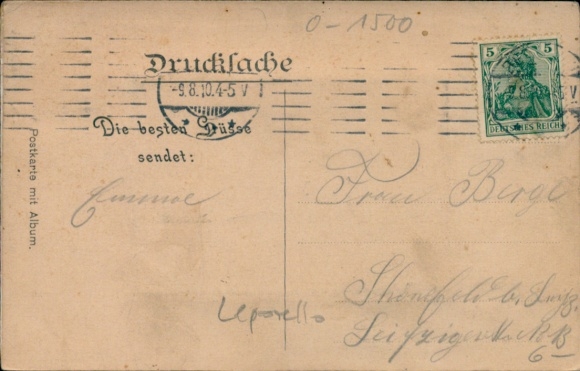 0-1500
Drucksache
-9.8.10.4-5 V
5 5
DEUTSCHES REICH
Die besten Grüsse
sendet:
Postkarte mit Album.
Frau Berge
Schönefeld b. Leipz.
Leporello
6-